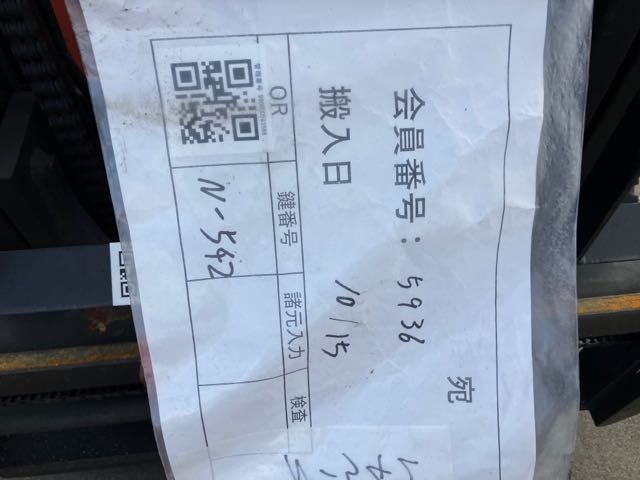 宛
会員番号：5936
搬入日 10/15
QR 鍵番号 諸元入力 検査
N-542
管理番号